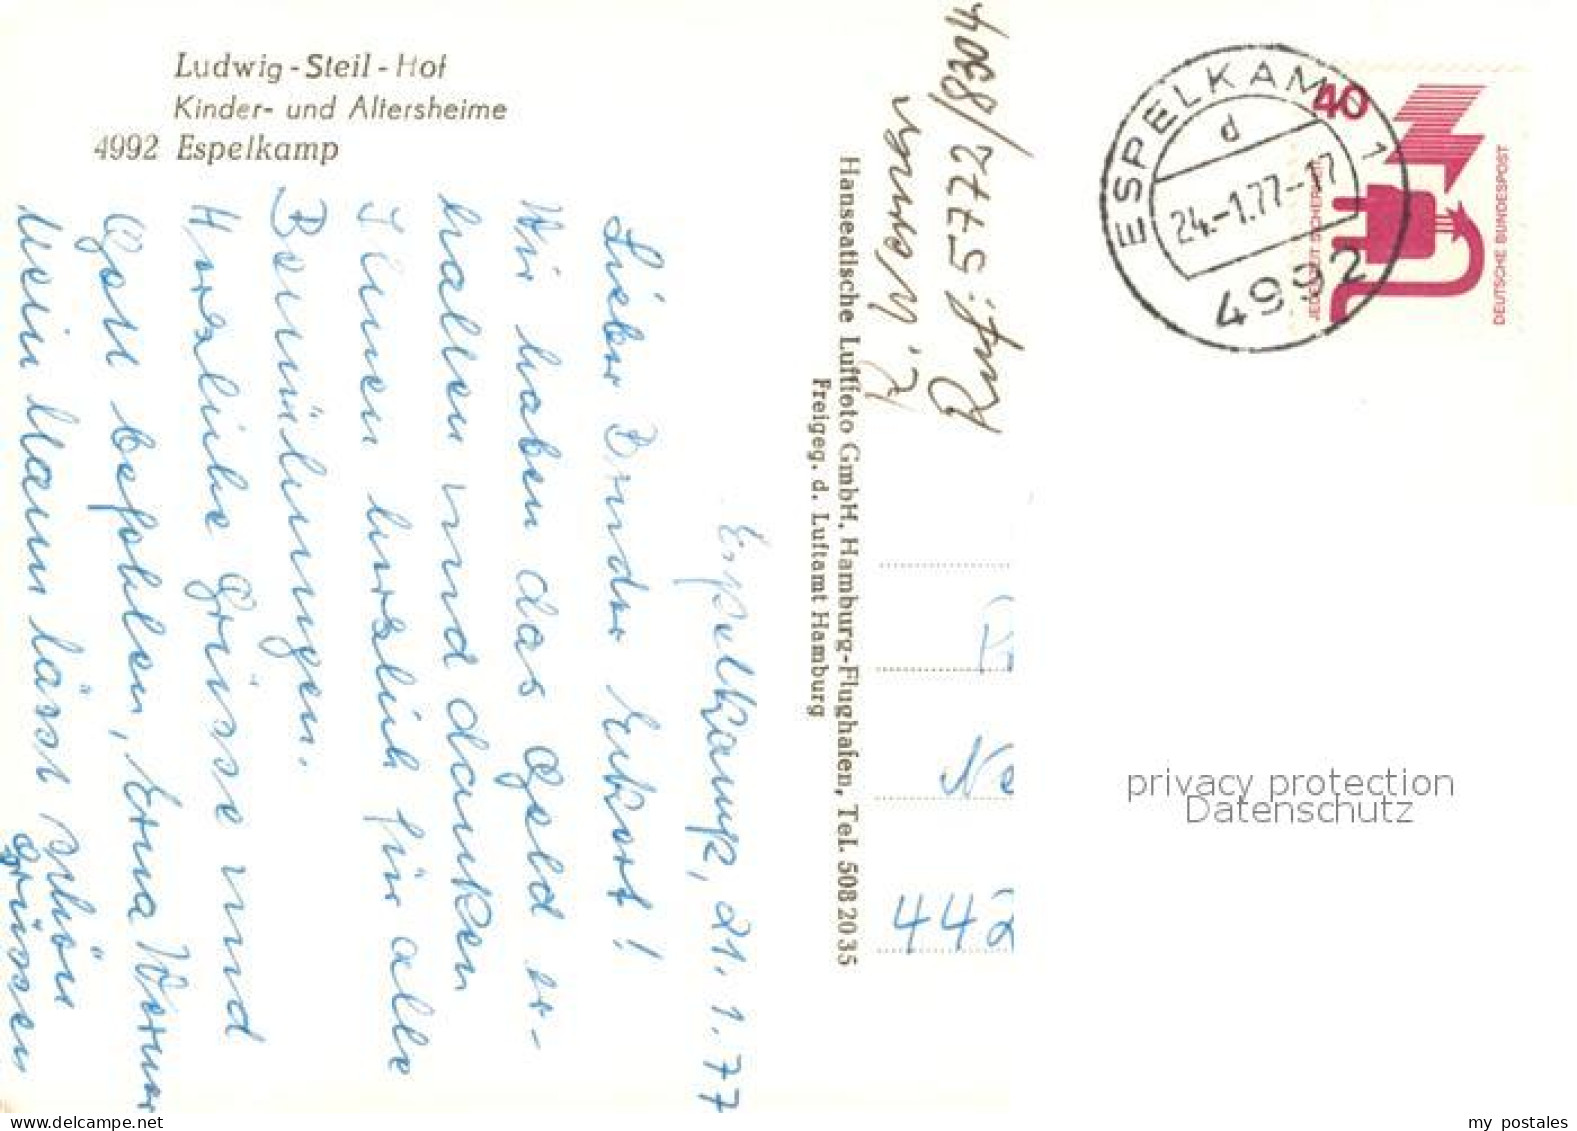 Ludwig-Steil-Hof
Kinder- und Altersheime
4992 Espelkamp
Espelkamp, 21.1.77
Lieber Bruder
Wir haben das Geld er-
halten und danken
Ihnen herzlich für alle
Bemühungen.
Herzliche Grüsse und
Gott befohlen, Erna Werner
Mein Mann lässt schön
Grüssen
Hanseatische Luftfoto GmbH, Hamburg-Flughafen, Tel. 508 20 35
Freigeg. d. Luftamt Hamburg
Ruf: 5772/8304
442
ESPELKAMP 1
d
24.-1.77--17
4992
40
JEDERZEIT SICHERHEIT
DEUTSCHE BUNDESPOST
privacy protection
Datenschutz
www.delcampe.net
my_postales